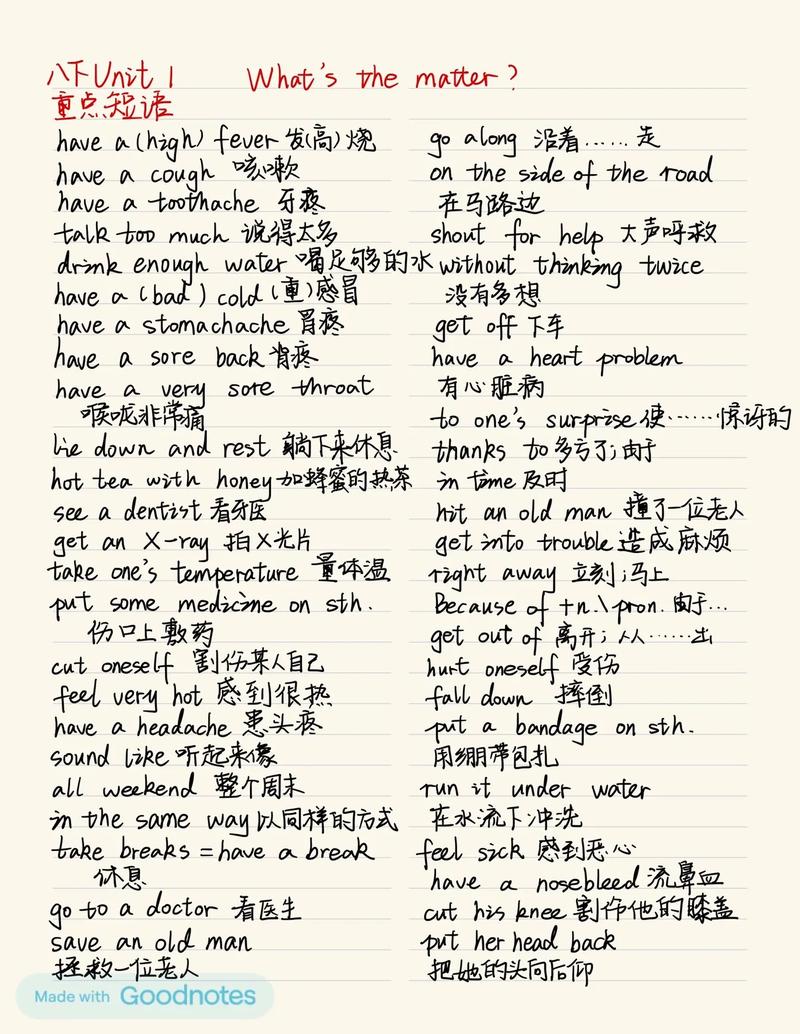 八下Unit 1 What's the matter?
重点短语
have a (high) fever 发(高)烧
have a cough 咳嗽
have a toothache 牙疼
talk too much 说得太多
drink enough water 喝足够多的水
have a (bad) cold (重)感冒
have a stomachache 胃疼
have a sore back 背疼
have a very sore throat
喉咙非常痛
lie down and rest 躺下来休息
hot tea with honey 加蜂蜜的热茶
see a dentist 看牙医
get an X-ray 拍X光片
take one's temperature 量体温
put some medicine on sth.
伤口上敷药
cut oneself 割伤某人自己
feel very hot 感到很热
have a headache 患头疼
sound like 听起来像
all weekend 整个周末
in the same way 以同样的方式
take breaks = have a break
休息
go to a doctor 看医生
save an old man
拯救一位老人
go along 沿着……走
on the side of the road
在马路边
shout for help 大声呼救
without thinking twice
没有多想
get off 下车
have a heart problem
有心脏病
to one's surprise 使……惊讶的
thanks to 多亏了;由于
in time 及时
hit an old man 撞了一位老人
get into trouble 造成麻烦
right away 立刻;马上
Because of +n.\pron. 由于…
get out of 离开;从……出
hurt oneself 受伤
fall down 摔倒
put a bandage on sth.
用绷带包扎
run it under water
在水流下冲洗
feel sick 感到恶心
have a nosebleed 流鼻血
cut his knee 割伤他的膝盖
put her head back
把她的头向后仰
Made with Goodnotes